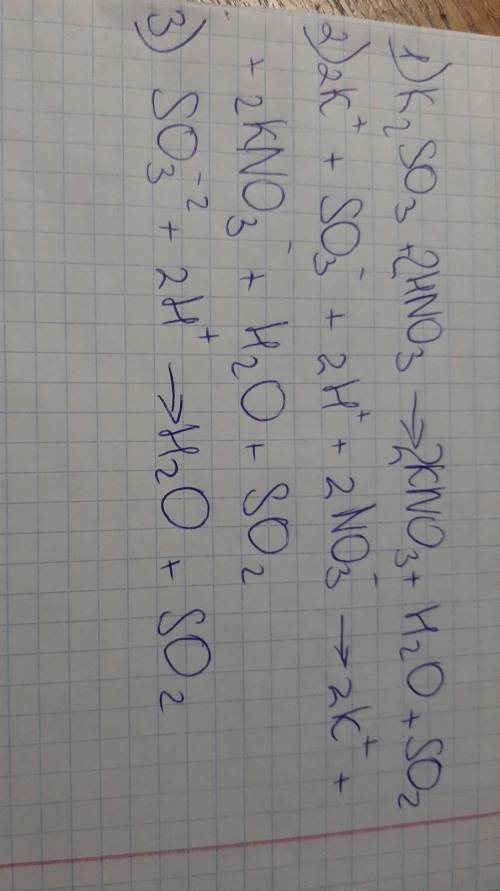 1) K₂SO₃ + 2HNO₃ → 2KNO₃ + H₂O + SO₂
2) 2K⁺ + SO₃⁻ + 2H⁺ + 2NO₃⁻ → 2K⁺ +
+ 2KNO₃⁻ + H₂O + SO₂
3) SO₃⁻² + 2H⁺ → H₂O + SO₂